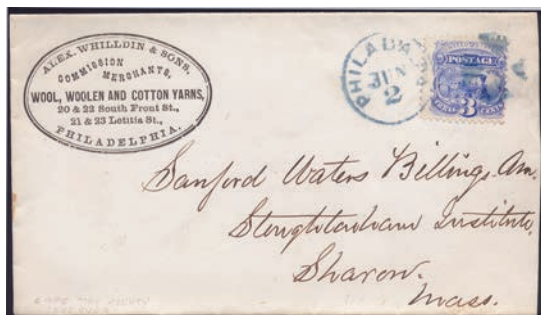 ALEX. WHILLDIN & SONS,
COMMISSION
MERCHANTS,
WOOL, WOOLEN AND COTTON YARNS,
20 & 22 South Front St.,
21 & 23 Letitia St.,
PHILADELPHIA.
PHILADA
JUN
2
POSTAGE
3
CENTS
Sanford Waters Billings. Am.
Stoughtonham Institute,
Sharon.
Mass.